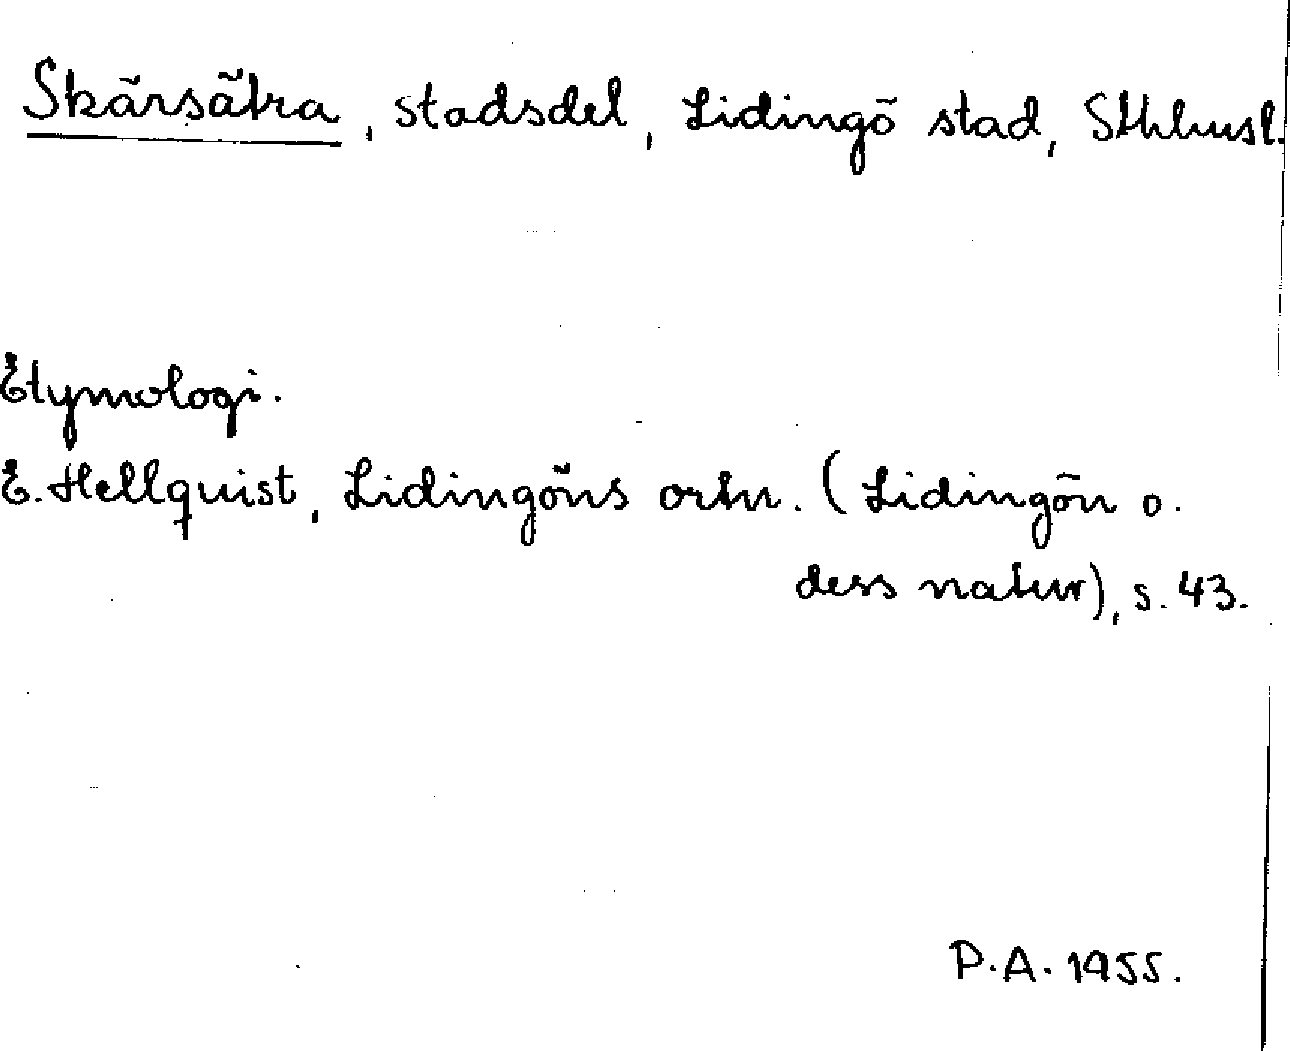 Skärsätra, stadsdel, Lidingö stad, Sthlmsl.
Etymologi.
E. Hellquist, Lidingöns ortn. (Lidingön o.
dess natur), s. 43.
P.A. 1955.